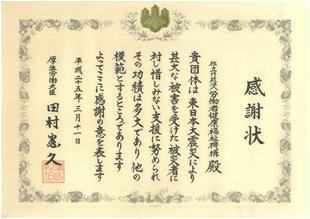 感謝状
独立行政法人労働者健康福祉機構 殿
貴団体は東日本大震災により
甚大な被害を受けた被災者に
対し惜しみない支援に努められ
その功績は多大であり他の
模範とするところであります
よってここに感謝の意を表します
平成二十五年三月十一日
厚生労働大臣
田村憲久